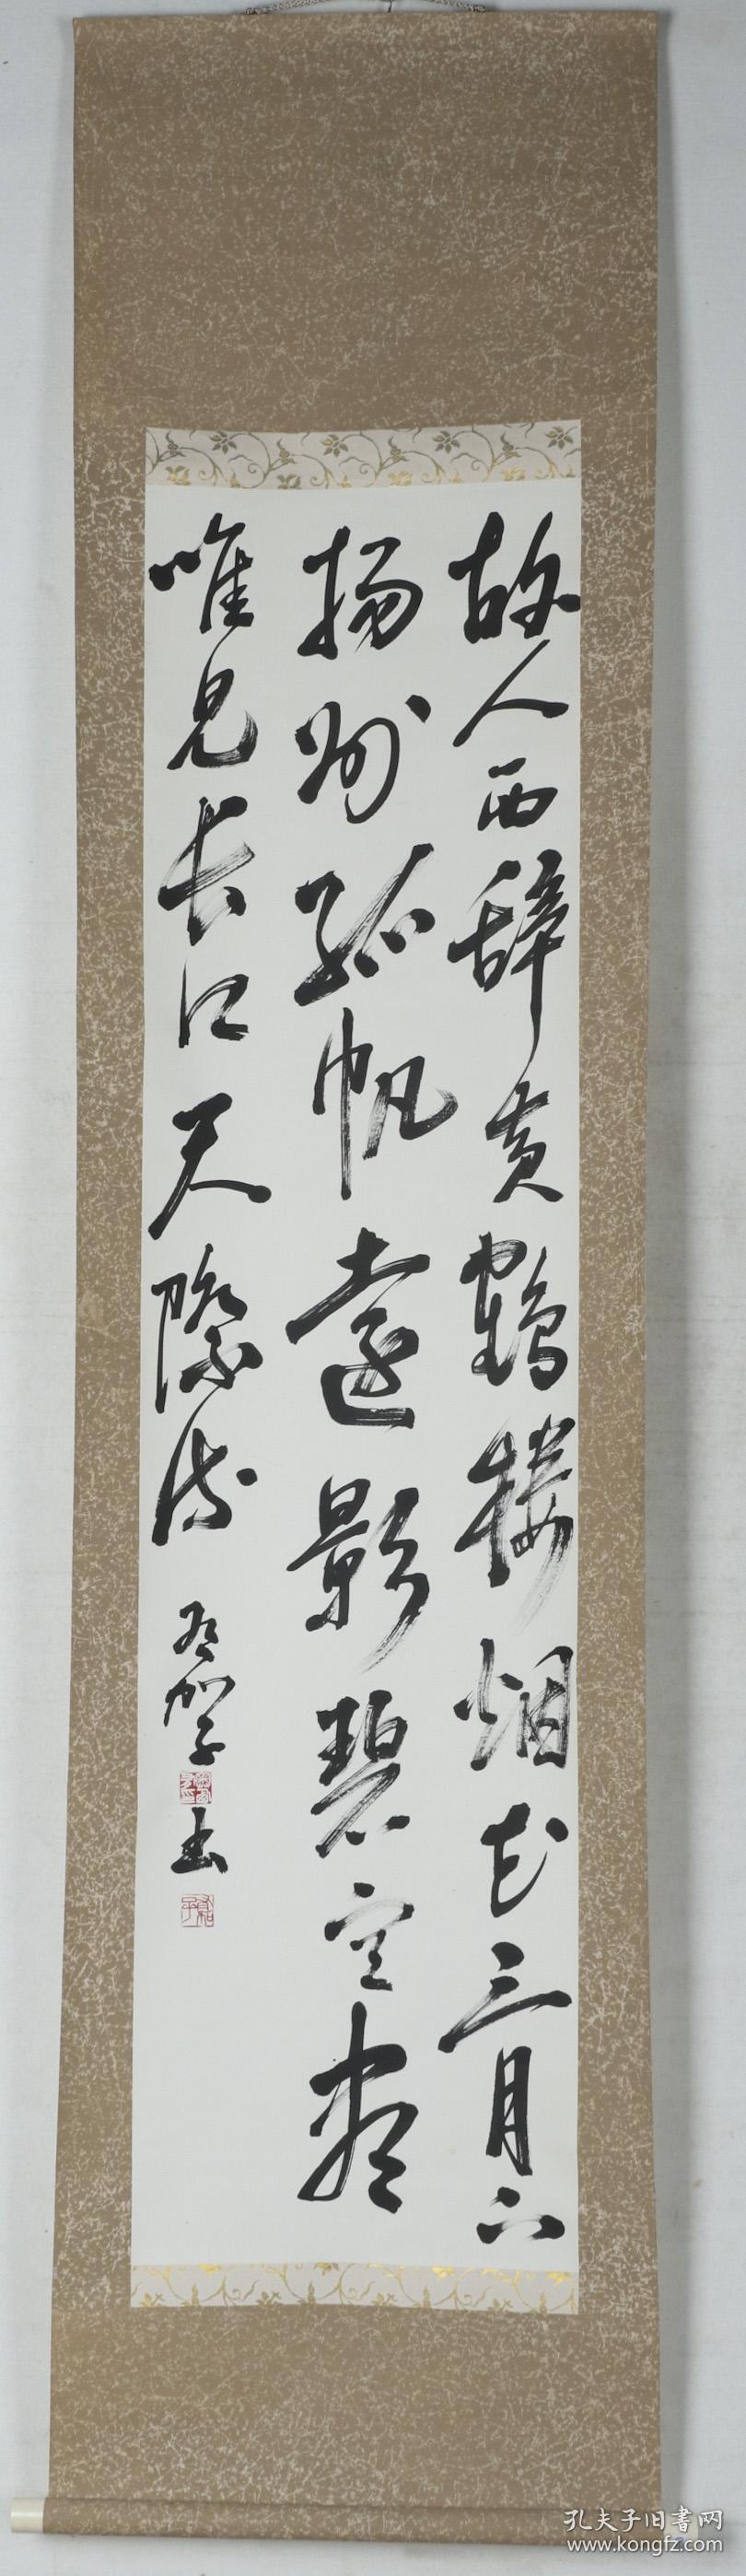 故人西辞黄鹤楼烟花三月下
扬州孤帆遠影碧空尽
唯見長江天際流
書
孔夫子旧書网
www.kongfz.com